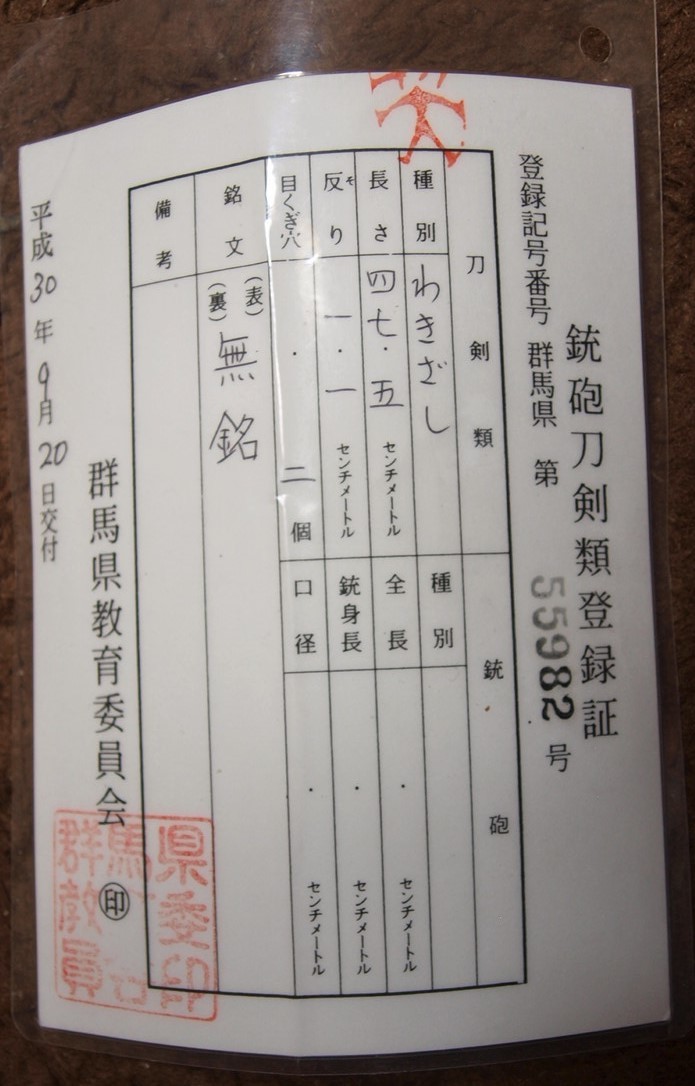 銃砲刀剣類登録証
登録記号番号 群馬県 第 55982 号
刀剣類
種別 わきざし
長さ 四七・五 センチメートル
反り 一・一 センチメートル
そ
目くぎ穴 ・ 二 個
銘文 (表)
(裏) 無銘
備考
銃砲
種別
全長 ・ センチメートル
銃身長 ・ センチメートル
口径 ・ センチメートル
群馬県教育委員会 ㊞
平成30年9月20日交付